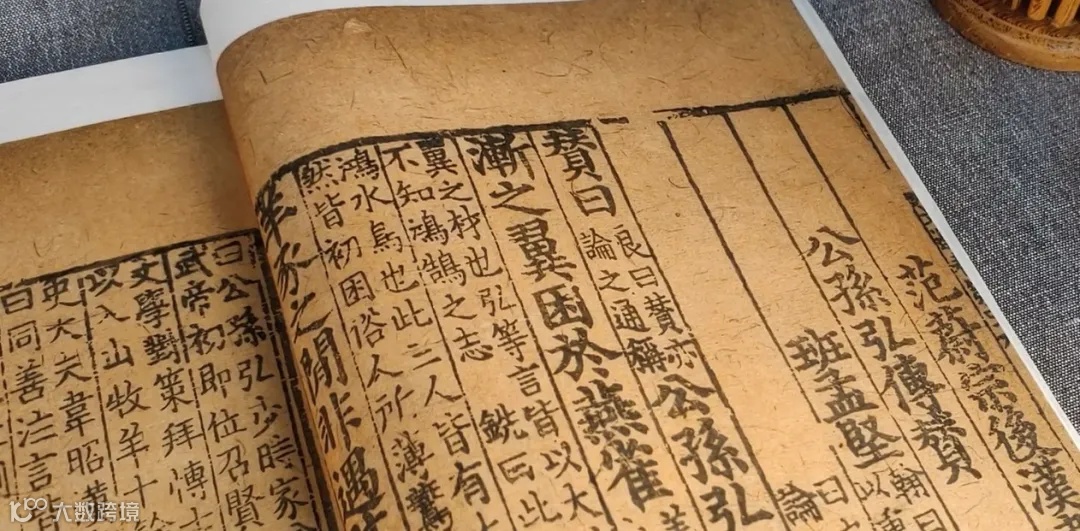 范蔚宗後漢
公孫弘傳贊
班孟堅
贊曰良曰贊亦論之通稱公孫弘
漸之翼困於燕雀
翼之材也弘等言皆以大
不知鴻鵠之志 銑曰此
鴻水鳥也此三人皆有
然皆初困俗人所薄
羊豕之間非遇
曰公孫弘少時家
武帝初即位召賢
文學對策拜博士
以入山牧羊十
史大夫韋昭
曰同善注言
大数跨境